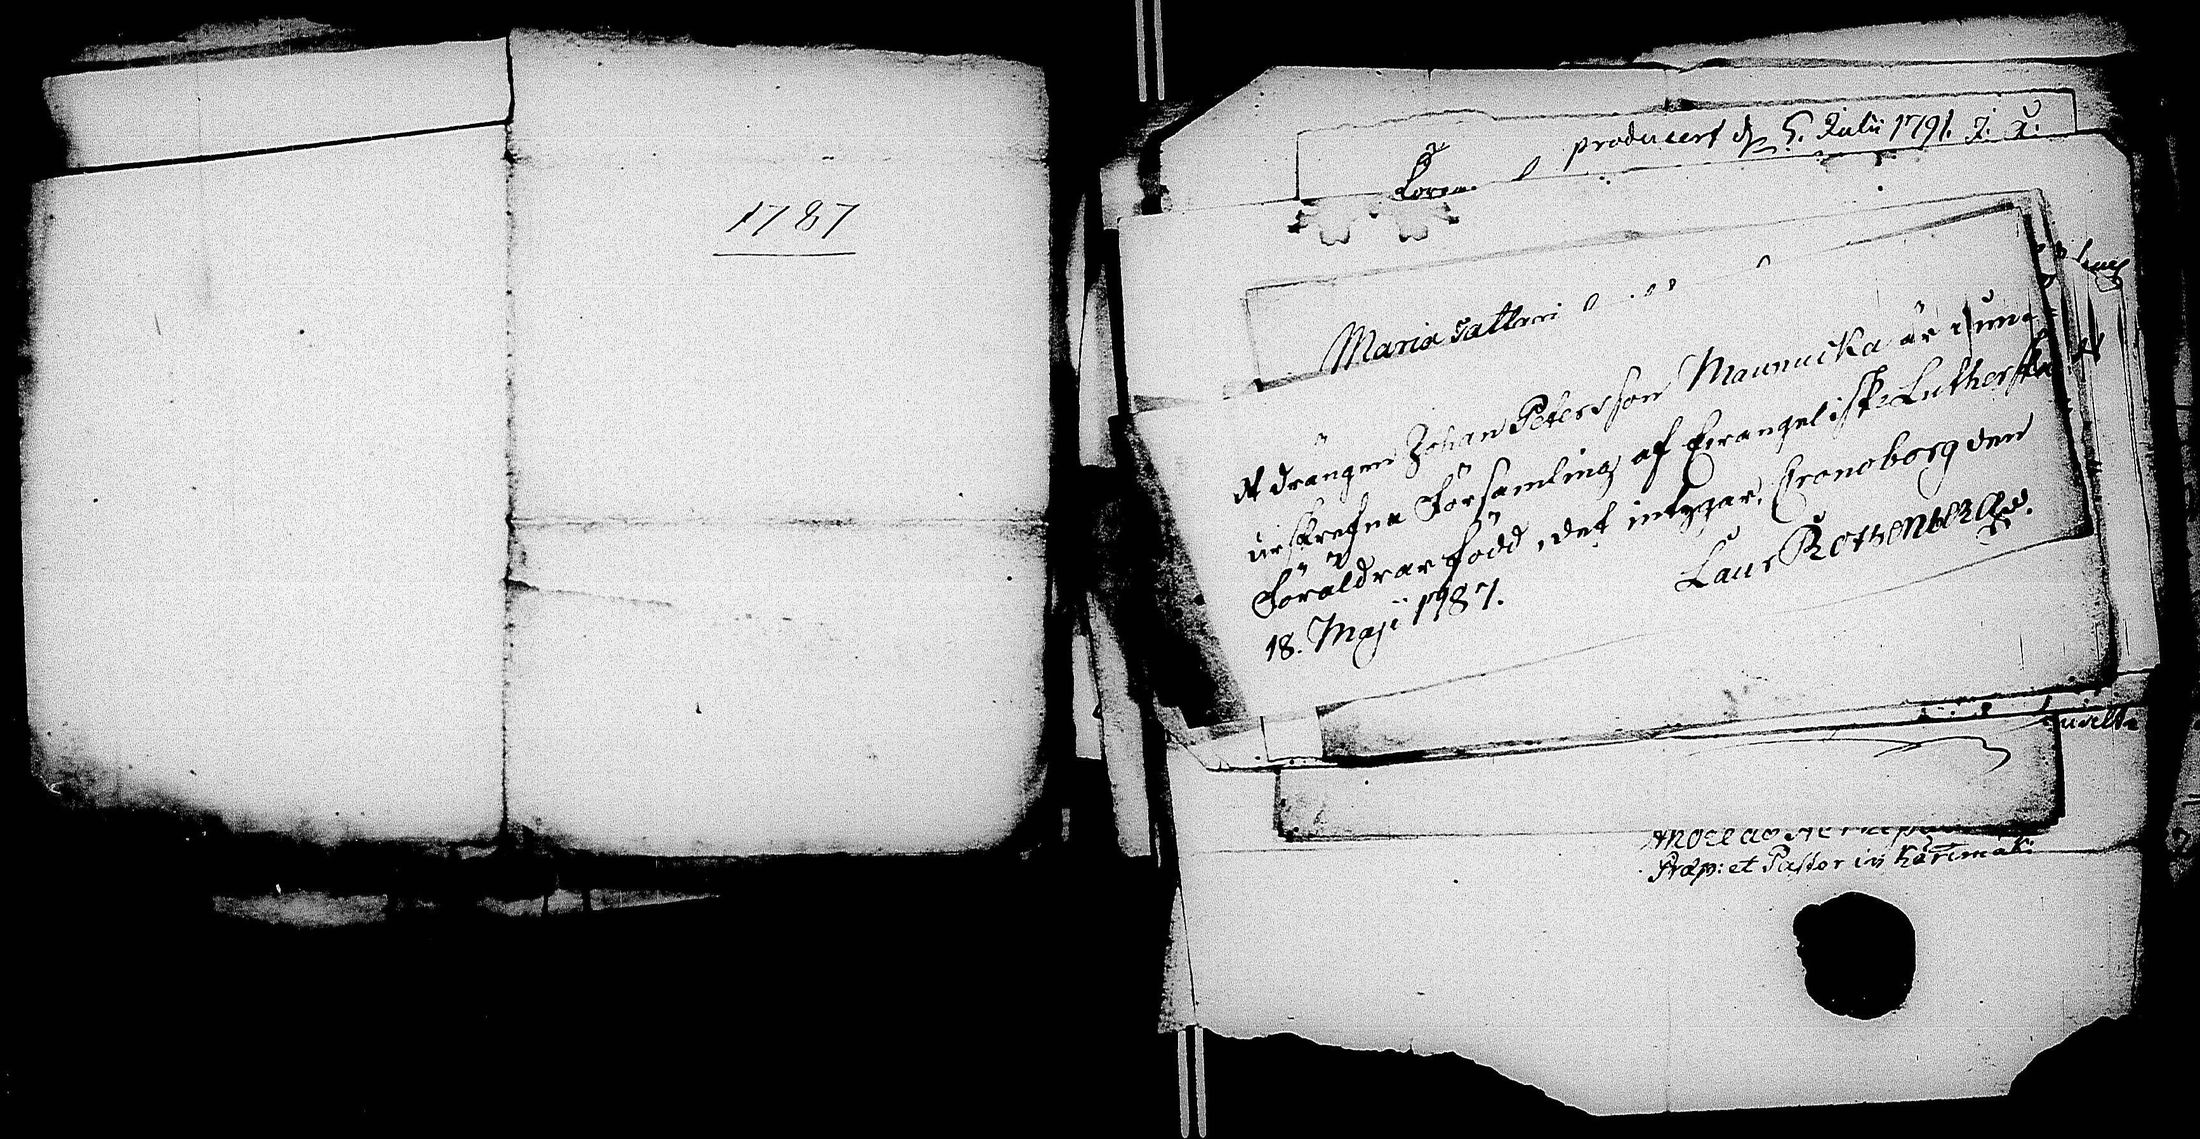 1787
producert d. 5. Julii 1791. J. J.
Maria Tattari
At drängen Johan Petersson Maunucka är i un-
urskrefna Församling af Evangelisk-Lutherska
Föräldrar född, det intygar, Cronoborg den
18. Maji 1787. Laur Rothenberg.
Præp: et Pastor in Kärimäki